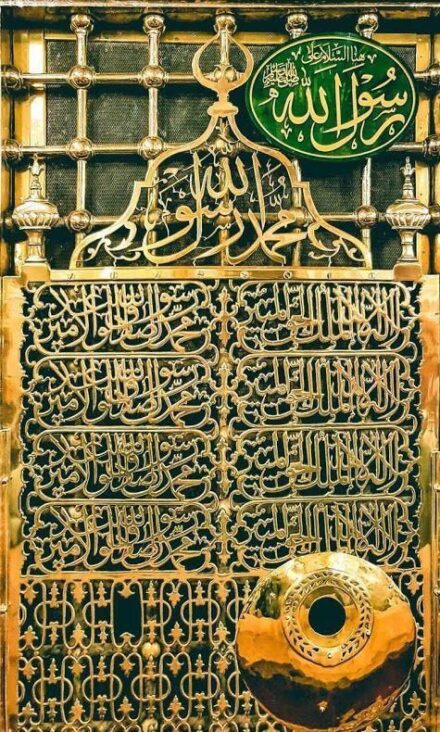 هنا السلام على
رسول الله ﷺ
محمد رسول الله
لا إله إلا الله الملك الحق المبين محمد رسول الله الصادق الوعد الأمين
لا إله إلا الله الملك الحق المبين محمد رسول الله الصادق الوعد الأمين
لا إله إلا الله الملك الحق المبين محمد رسول الله الصادق الوعد الأمين
لا إله إلا الله الملك الحق المبين محمد رسول الله الصادق الوعد الأمين